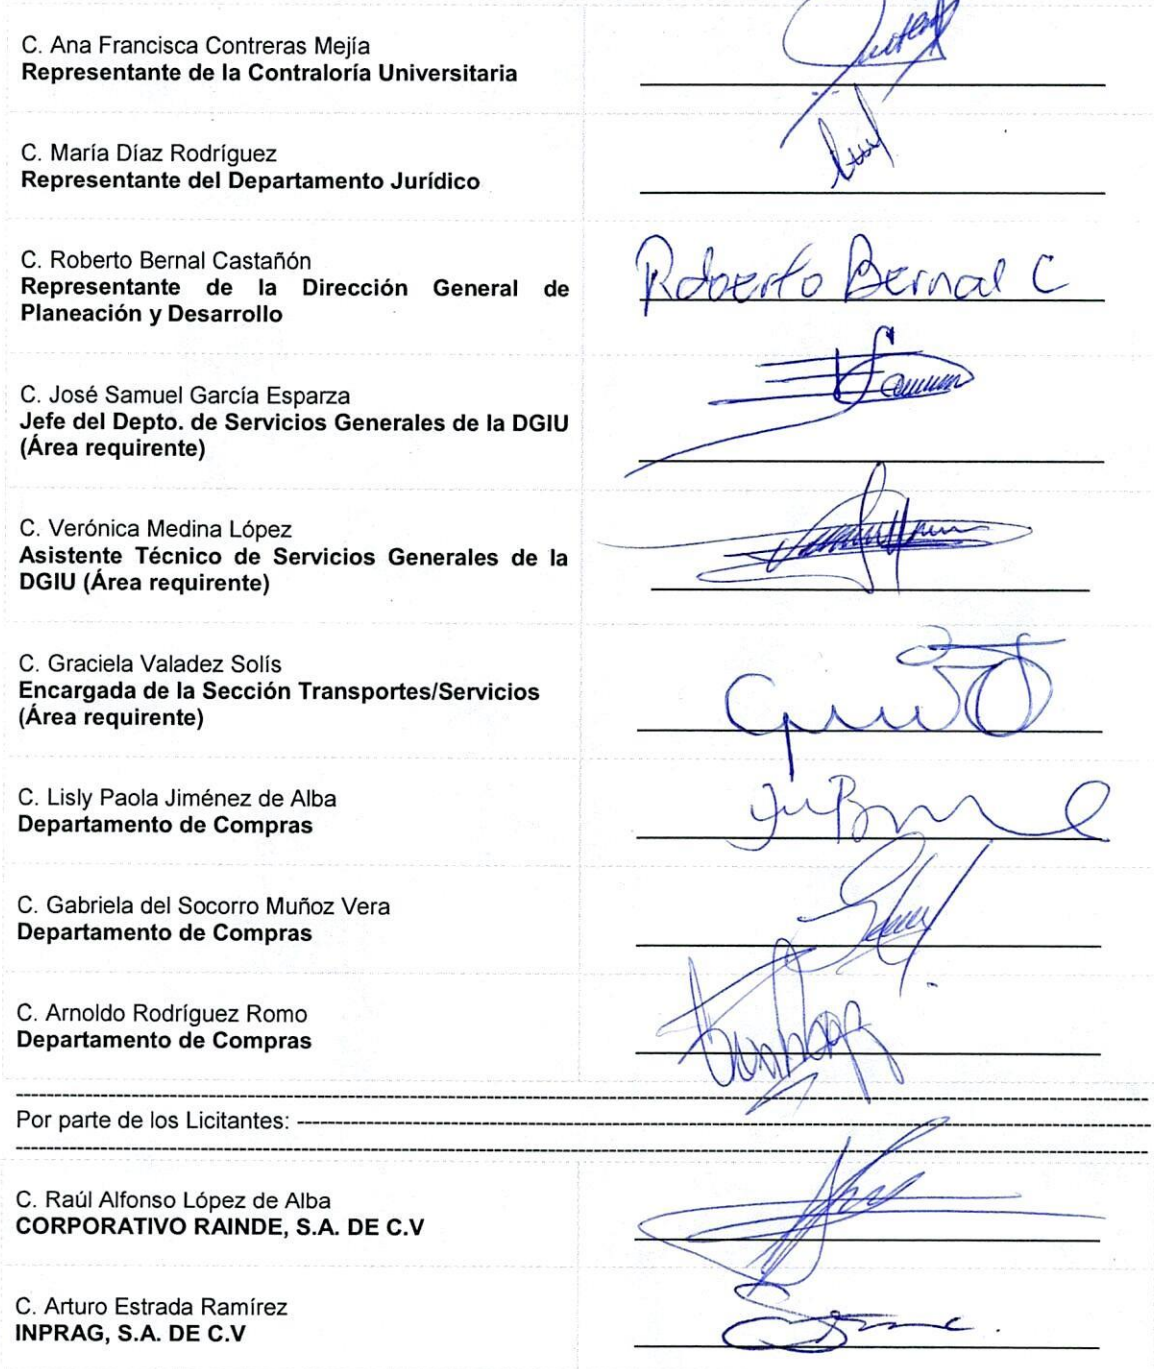 C. Ana Francisca Contreras Mejía
Representante de la Contraloría Universitaria
C. María Díaz Rodríguez
Representante del Departamento Jurídico
C. Roberto Bernal Castañón
Representante de la Dirección General de
Planeación y Desarrollo
Roberto Bernal C
C. José Samuel García Esparza
Jefe del Depto. de Servicios Generales de la DGIU
(Área requirente)
C. Verónica Medina López
Asistente Técnico de Servicios Generales de la
DGIU (Área requirente)
C. Graciela Valadez Solís
Encargada de la Sección Transportes/Servicios
(Área requirente)
C. Lisly Paola Jiménez de Alba
Departamento de Compras
C. Gabriela del Socorro Muñoz Vera
Departamento de Compras
C. Arnoldo Rodríguez Romo
Departamento de Compras
Por parte de los Licitantes:
C. Raúl Alfonso López de Alba
CORPORATIVO RAINDE, S.A. DE C.V
C. Arturo Estrada Ramírez
INPRAG, S.A. DE C.V